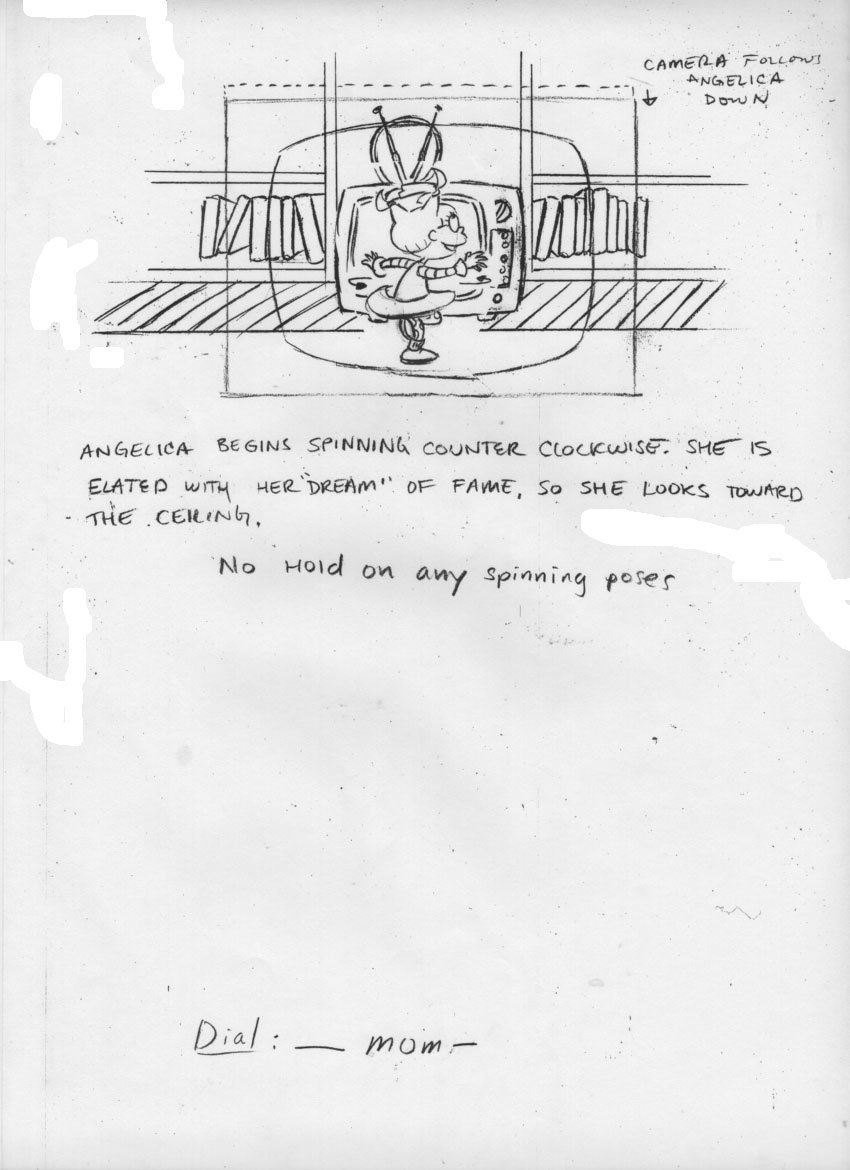 CAMERA FOLLOWS
ANGELICA
DOWN
ANGELICA BEGINS SPINNING COUNTER CLOCKWISE. SHE IS
ELATED WITH HER "DREAM" OF FAME, SO SHE LOOKS TOWARD
THE CEILING.
No Hold on any spinning poses
Dial: __ mom —